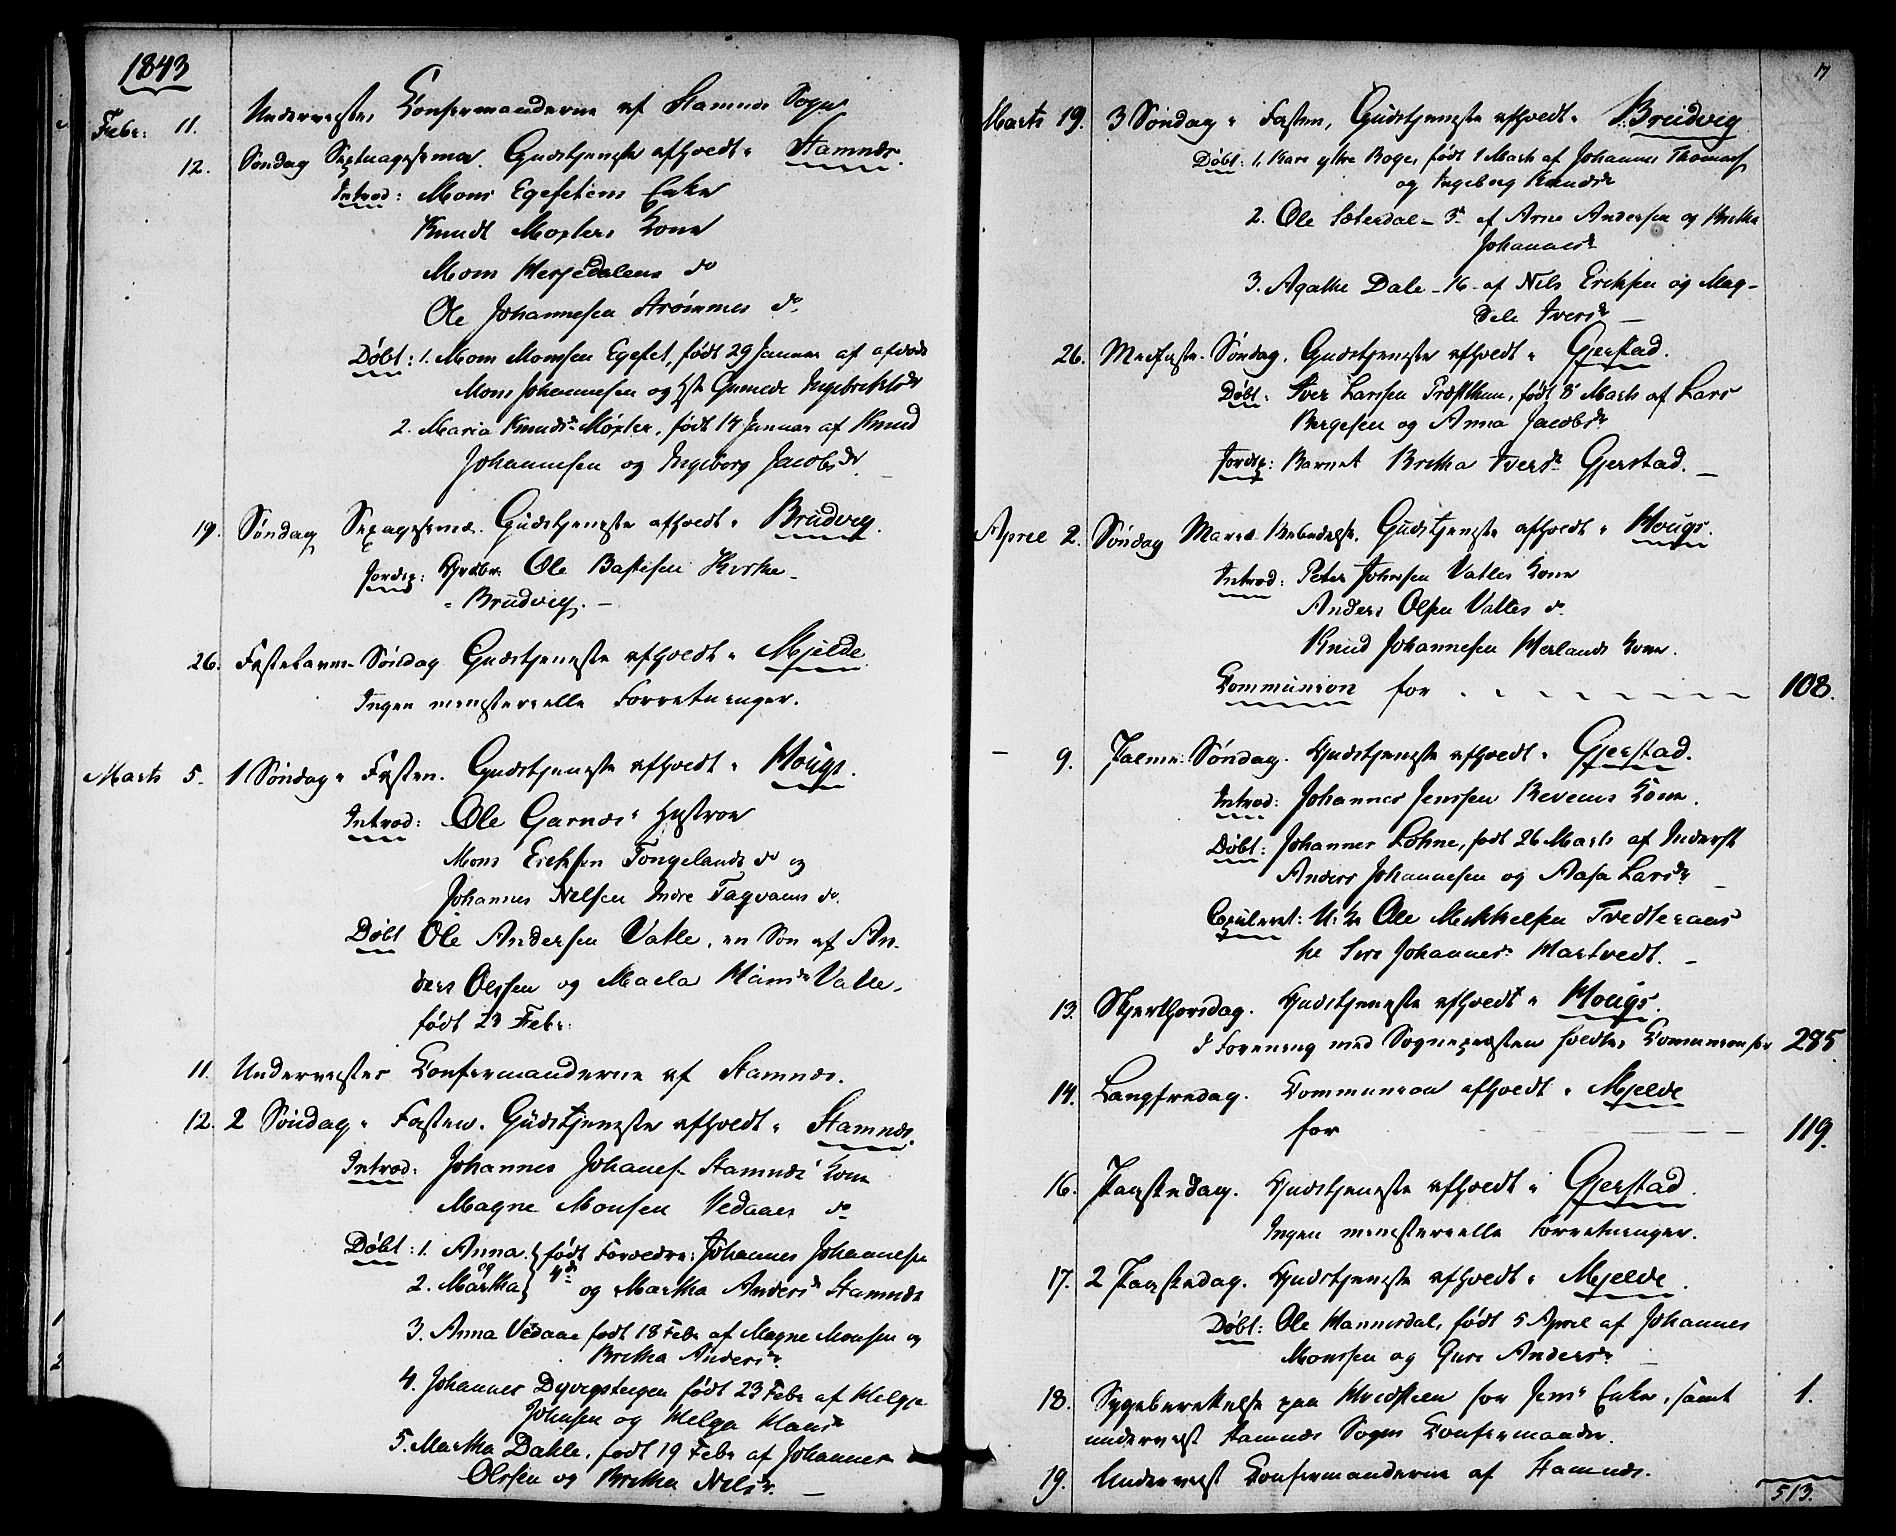 1843
Febr: 11. Underviistes Confirmanderne af Stamnes Sogn
12. Søndag Septuagesima. Gudstjeneste afholdt i Stamnes.
Introd: Mons Egesetens Enke
Knudt Moxters Kone
Mons Hesjedalens do
Ole Johannesen Strømmes do
Døbt: 1. Mons Monsen Egeset, født 29 Januar af afdøde
Mons Johannesen og Hst Gunilde Ingebrektsdr
2. Maria Knudsdr Moxter, født 14 Januar af Knud
Johannesen og Ingeborg Jacobsdr
19. Søndag Sexagesima. Gudstjeneste afholdt i Brudvig.
Jordsp: Ole Bastesen Kirke-
Brudvig. -
26. Fastelavns Søndag Gudstjeneste afholdt i Mjelde
Ingen ministerielle Forretninger.
Marts 5. 1 Søndag i Fasten. Gudstjeneste afholdt i Hougs.
Introd: Ole Garnæs' Hustroe
Mons Ericksen Tongelands do og
Johannes Nilsen Indre Tagvams do.
Døbt Ole Andersen Vatle, en Søn af An-
ders Olssen og Maela Hansdr Vatle,
født 23 Febr.
11. Underviistes Confirmanderne af Stamnes.
12. 2 Søndag i Fasten. Gudstjeneste afholdt i Stamnes.
Introd: Johannes Johanes. Stamnæs' Kone
Magne Monsen Vedaaes do
Døbt: 1. Anna } født Forældre: Johannes Johannesen
og
2. Martha } 4de og Martha Andersdr Stamnes
3. Anna Vedaae født 18 Febr af Magne Monsen og
Britha Andersdr
4. Johannes Dyvigsteigen født 23 Febr af Helge
Johnsen og Helga Hansdr
5. Martha Dahle, født 19 Febr af Johannes
Olssen og Britha Nilsdr. -
17
Marts 19. 3 Søndag i Fasten, Gudstjeneste afholdt i Brudvig
Døbt: 1. Kari ytre Boge, født 1 Marts af Johannes Thomass.
og Ingeborg Knudsdr
2. Ole Sæterdal - 3. af Arne Andersen og Britha
Johannesdr
3. Agathe Dale - 16 - af Nils Ericksen og Mag-
dele Iversdr -
26. Midfaste-Søndag, Gudstjeneste afholdt i Gjerstad.
Døbt: Iver Larssen Præsthun, født 8 Marts af Lars
Bergesen og Anna Jacobsdr
Jordsp: Barnet Britha Iversdr Gjerstad. -
April 2. Søndag Mariæ Bebudelse, Gudstjeneste afholdt i Hougs.
Introd: Peter Johnsen Vatles Kone
Anders Olsen Vatles do.
Knud Johannesen Herlands Kone.
Communion for - - - - - - - - 108.
- 9. Palme-Søndag. Gudstjeneste afholdt i Gjerstad.
Introd: Johannes Jenssen Revems Kone.
Døbt: Johannes Lohne, født 26 Marts af Inderst
Anders Johannesen og Aasa Larsdr -
Copuleret: U:K Ole Mikkelsen Tvedteraas
til Siri Johannesdr Hartvedt. -
13. Skjertorsdag. Gudstjeneste afholdt i Hougs.
I Forening med Sognepræsten holdtes Communion for 285
14. Langfredag. Communion afholdt i Mjelde
for - - - 119.
16. Paaskedag. Gudstjeneste afholdt i Gjerstad
Ingen ministerielle Forretninger.
17. 2 Paaskedag. Gudstjeneste afholdt i Mjelde.
Døbt: Ole Hannisdal, født 5 April af Johannes
Monssen og Guri Andersdr -
18. Sygeberettelse paa Hvidsteen for Jens' Enke, samt 1.
underviist Stamnæs Sogns Confirmander.
19. Underviist Confirmanderne af Stamnes.
513.